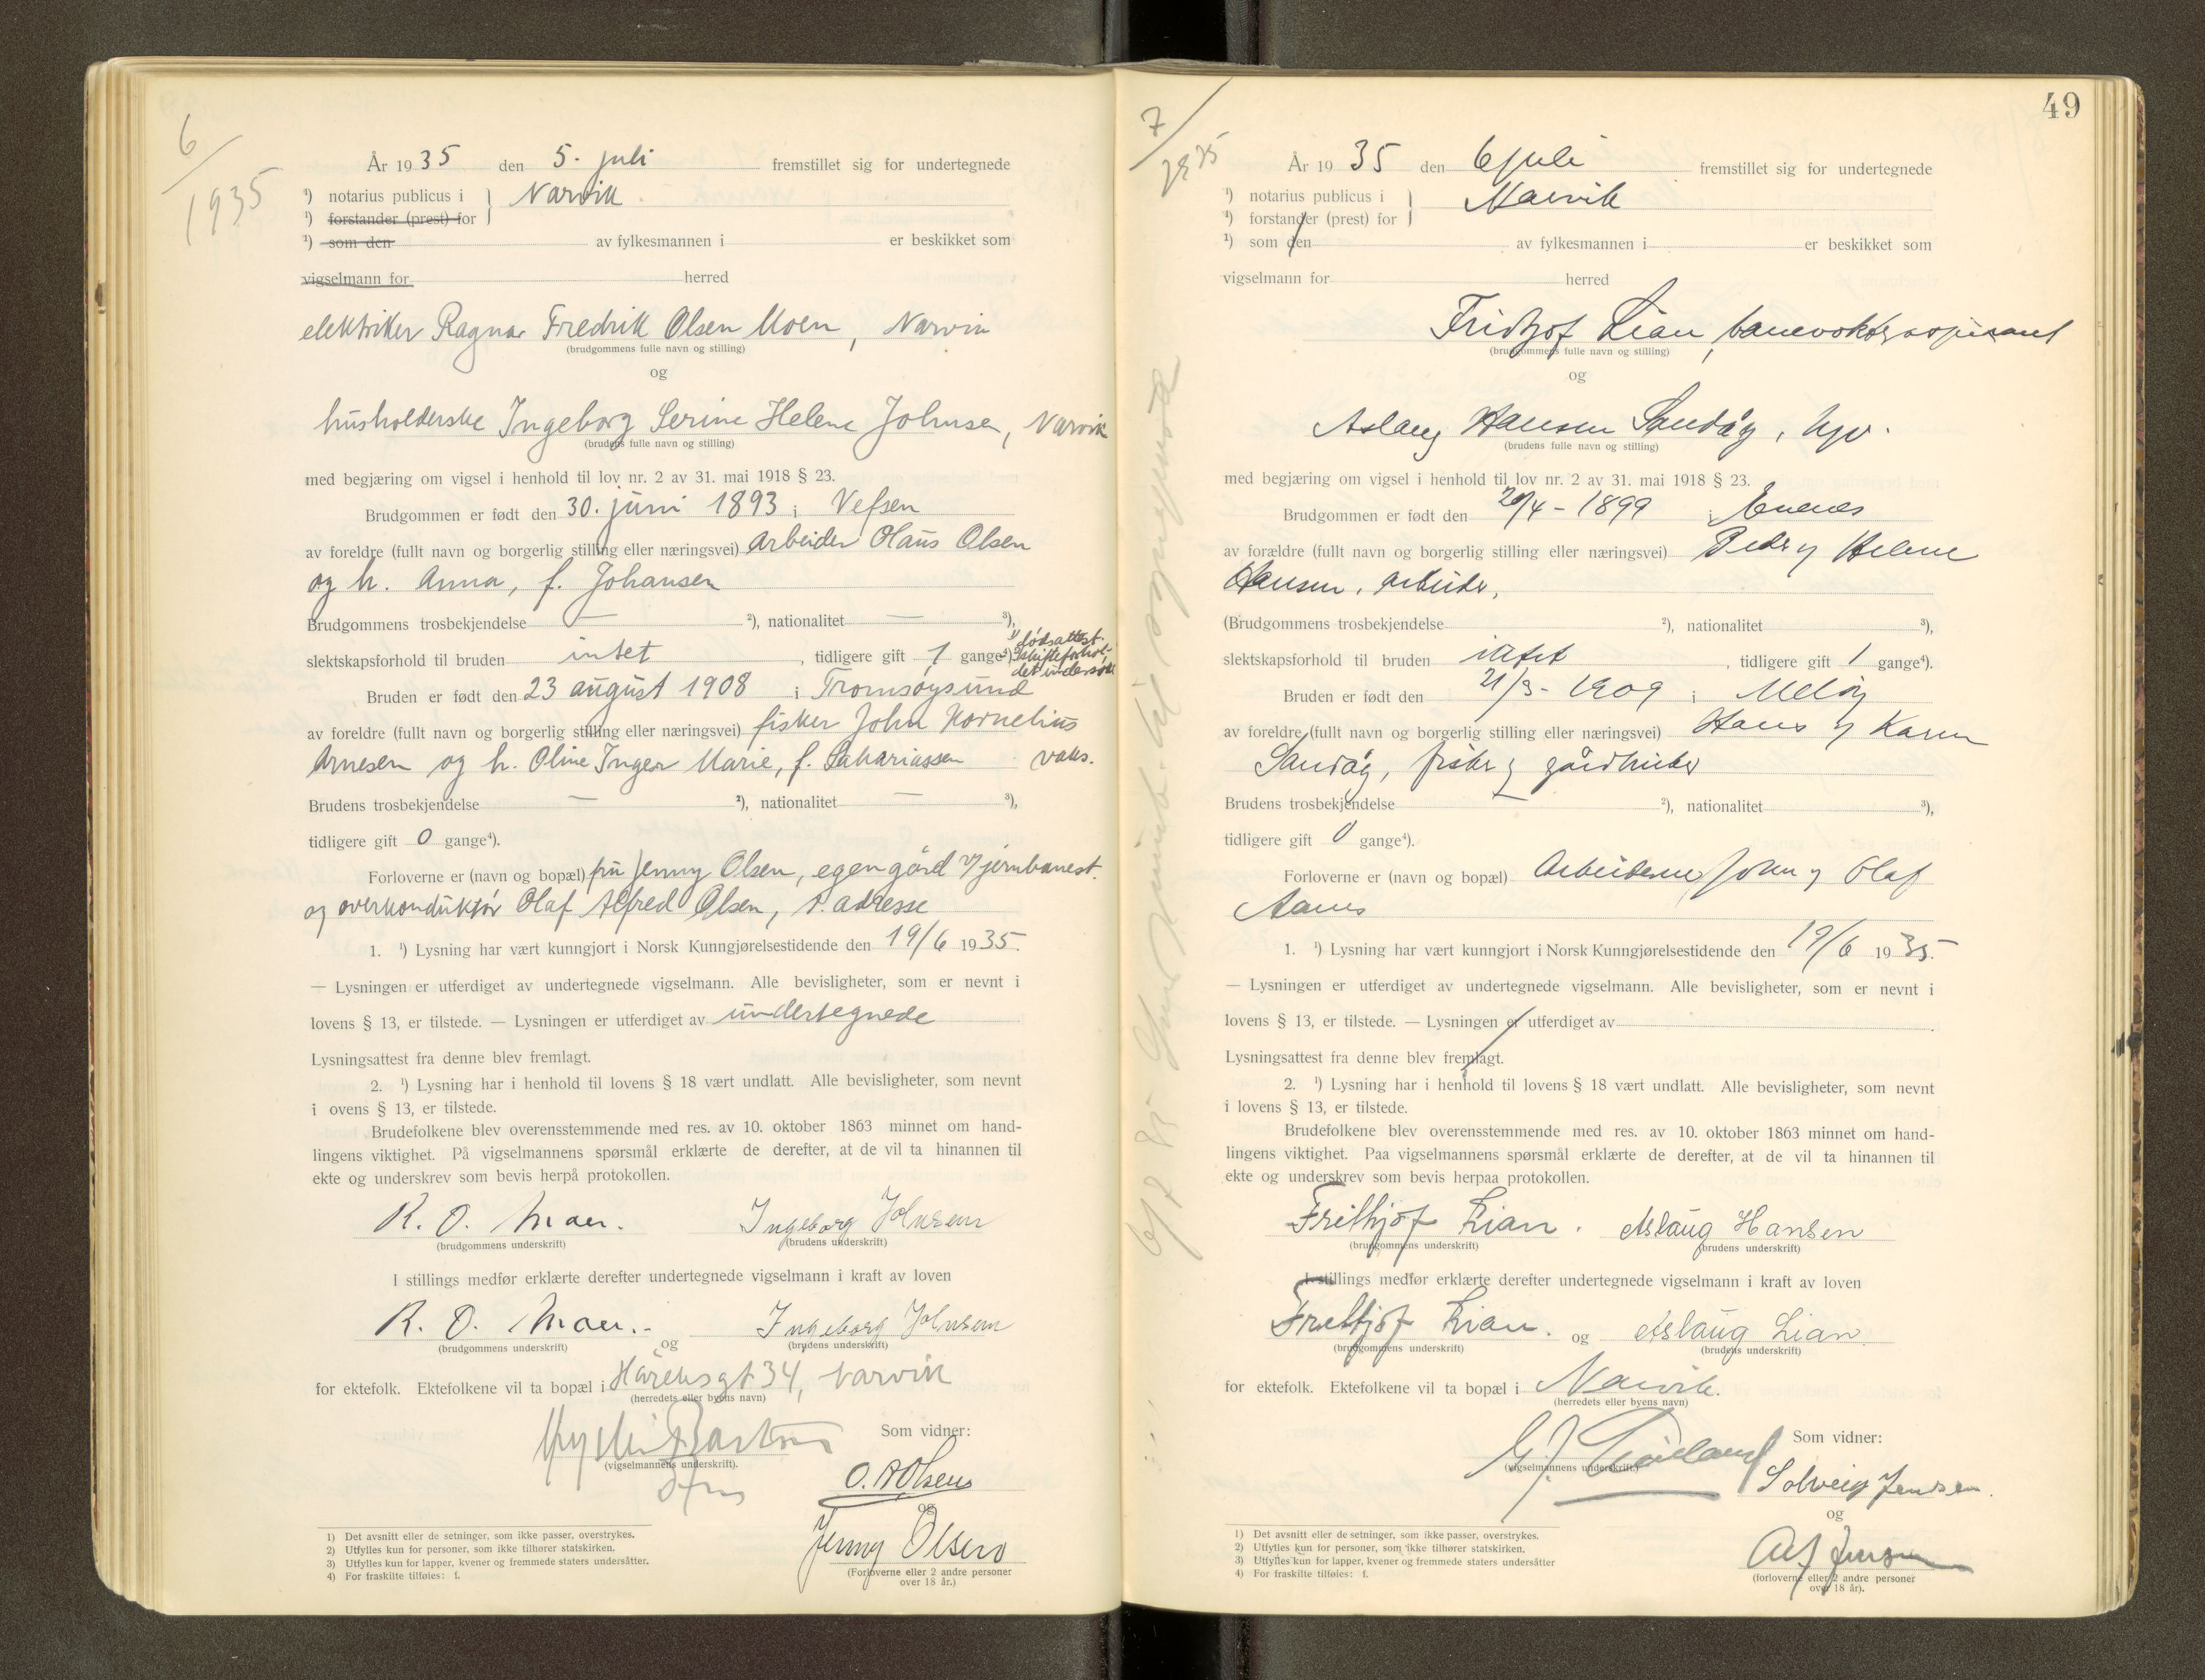 6/1935
År 1935 den 5. juli fremstillet sig for undertegnede
¹) notarius publicus i } Narvik
¹) forstander (prest) for
¹) som den av fylkesmannen i er beskikket som
vigselmann for herred
elektriker Ragnar Fredrik Olsen Moen, Narvik
(brudgommens fulle navn og stilling)
og
husholderske Ingeborg Serine Helene Johnsen, Narvik
(brudens fulle navn og stilling)
med begjæring om vigsel i henhold til lov nr. 2 av 31. mai 1918 § 23.
Brudgommen er født den 30. juni 1893 i Vefsen
av foreldre (fullt navn og borgerlig stilling eller næringsvei) arbeider Olaus Olsen
og h. Anna, f. Johansen
Brudgommens trosbekjendelse — ²), nationalitet — ³),
slektskapsforhold til bruden intet, tidligere gift 1 gange⁴) dødsattest. Skifteforhol-
det undersøkt
Bruden er født den 23 august 1908 i Tromsøysund
av foreldre (fullt navn og borgerlig stilling eller næringsvei) fisker John Kornelius
Arnesen og h. Oline Inger Marie, f. Sakariassen vaks.
Brudens trosbekjendelse — ²), nationalitet — ³),
tidligere gift 0 gange⁴).
Forloverne er (navn og bopæl) fru Jenny Olsen, egen gård v/jernbanest.
og overkonduktør Olaf Alfred Olsen, s. adresse
1. ¹) Lysning har vært kunngjort i Norsk Kunngjørelsestidende den 19/6 1935.
— Lysningen er utferdiget av undertegnede vigselmann. Alle bevisligheter, som er nevnt i
lovens § 13, er tilstede. — Lysningen er utferdiget av undertegnede
Lysningsattest fra denne blev fremlagt.
2. ¹) Lysning har i henhold til lovens § 18 vært undlatt. Alle bevisligheter, som nevnt
i ovens § 13, er tilstede.
Brudefolkene blev overensstemmende med res. av 10. oktober 1863 minnet om hand-
lingens viktighet. På vigselmannens spørsmål erklærte de derefter, at de vil ta hinannen til
ekte og underskrev som bevis herpå protokollen.
R. O. Moen. Ingeborg Johnsen
(brudgommens underskrift) (brudens underskrift)
I stillings medfør erklærte derefter undertegnede vigselmann i kraft av loven
R. O. Moen.- og Ingeborg Johnsen
(brudgommens underskrift) (brudens underskrift)
for ektefolk. Ektefolkene vil ta bopæl i Håreksgt 34, Narvik
(herredets eller byens navn)
Som vidner:
(vigselmannens underskrift).
O. A Olsen
og
Jenny Olsen
(Forloverne eller 2 andre personer
over 18 år.)
1) Det avsnitt eller de setninger, som ikke passer, overstrykes.
2) Utfylles kun for personer, som ikke tilhører statskirken.
3) Utfylles kun for lapper, kvener og fremmede staters undersåtter.
4) For fraskilte tilføies: f.
49
7/1935
År 1935 den 6 juli fremstillet sig for undertegnede
¹) notarius publicus i } Narvik
¹) forstander (prest) for
¹) som den av fylkesmannen i er beskikket som
vigselmann for herred
Fridtjof Lian, banevokteraspirant
(brudgommens fulle navn og stilling)
og
Aslaug Hansen Sandåg,
(brudens fulle navn og stilling)
med begjæring om vigsel i henhold til lov nr. 2 av 31. mai 1918 § 23.
Brudgommen er født den 20/4 - 1899 i Evenes
av forældre (fullt navn og borgerlig stilling eller næringsvei) Peder og Helene
Hansen, arbeider,
(Brudgommens trosbekjendelse ²), nationalitet ³),
slektskapsforhold til bruden intet, tidligere gift 1 gange⁴).
Bruden er født den 21/3 - 1909 i Meløy
av foreldre (fullt navn og borgerlig stilling eller næringsvei) Hans og Karen
Sandåg, fisker og gårdbruker
Brudens trosbekjendelse — ²), nationalitet ³),
tidligere gift 0 gange⁴).
Forloverne er (navn og bopæl) Arbeiderne John og Olaf
Aanes
1. ¹) Lysning har vært kunngjort i Norsk Kunngjørelsestidende den 19/6 1935.
— Lysningen er utferdiget av undertegnede vigselmann. Alle bevisligheter, som er nevnt i
lovens § 13, er tilstede. — Lysningen er utferdiget av
Lysningsattest fra denne blev fremlagt.
2. ¹) Lysning har i henhold til lovens § 18 vært undlatt. Alle bevisligheter, som nevnt
i lovens § 13, er tilstede.
Brudefolkene blev overensstemmende med res. av 10. oktober 1863 minnet om hand-
lingens viktighet. Paa vigselmannens spørsmål erklærte de derefter, at de vil ta hinannen til
ekte og underskrev som bevis herpaa protokollen.
Frithjof Lian. Aslaug Hansen
(brudgommens underskrift) (brudens underskrift)
I stillings medfør erklærte derefter undertegnede vigselmann i kraft av loven
Frithjof Lian. og Aslaug Lian
(brudgommens underskrift) (brudens underskrift)
for ektefolk. Ektefolkene vil ta bopæl i Narvik.
(herredets eller byens navn)
Som vidner:
(vigselmannens underskrift.)
Solveig Jensen.
og
Alf Jensen
(forloverne eller 2 andre personer
over 18 år).
1) Det avsnitt eller de setninger, som ikke passer, overstrykes.
2) Utfylles kun for personer, som ikke tilhører statskirken.
3) Utfylles kun for lapper, kvener og fremmede staters undersåtter
4) For fraskilte tilføies: f.